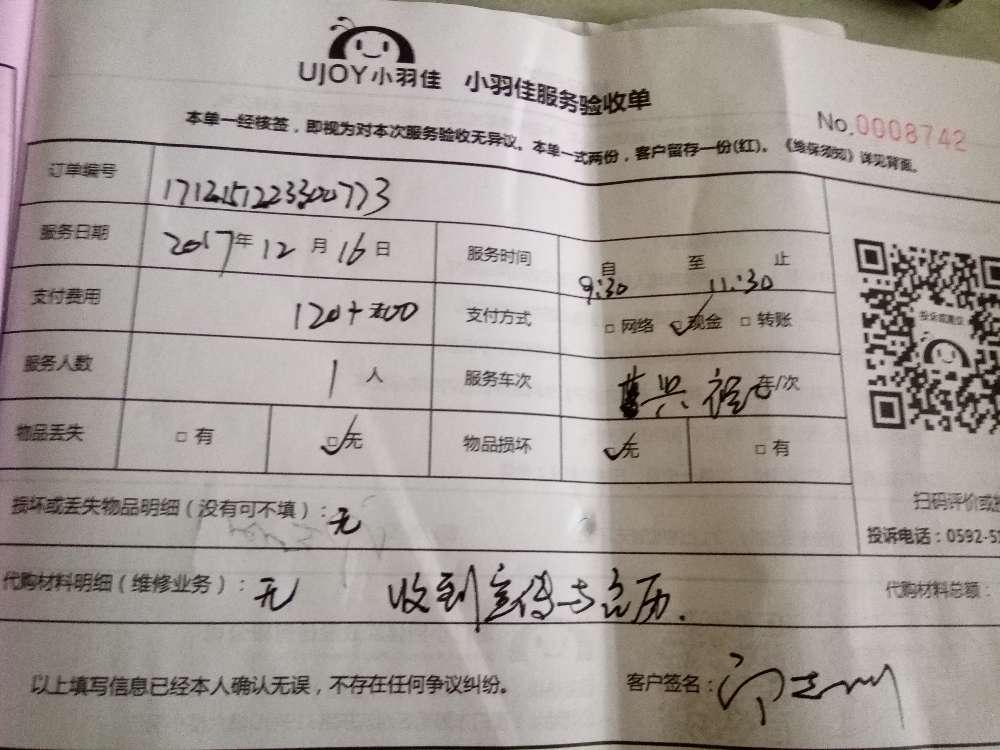 UJOY小羽佳 小羽佳服务验收单
No.0008742
本单一经核签，即视为对本次服务验收无异议。本单一式两份，客户留存一份(红)。《维保须知》详见背面。
订单编号 171215122330077​3
服务日期 2017年12月16日 服务时间 自 9:30 至 11:30 止
支付费用 120+ 支付方式 □网络 ☑现金 □转账
服务人数 1人 服务车次 车/次
物品丢失 □有 ☑无 物品损坏 ☑无 □有
扫码评价或投
损坏或丢失物品明细（没有可不填）：无
投诉电话：0592-51
代购材料明细（维修业务）：无 收到宣传与台历.
代购材料总额：
以上填写信息已经本人确认无误，不存在任何争议纠纷。 客户签名：